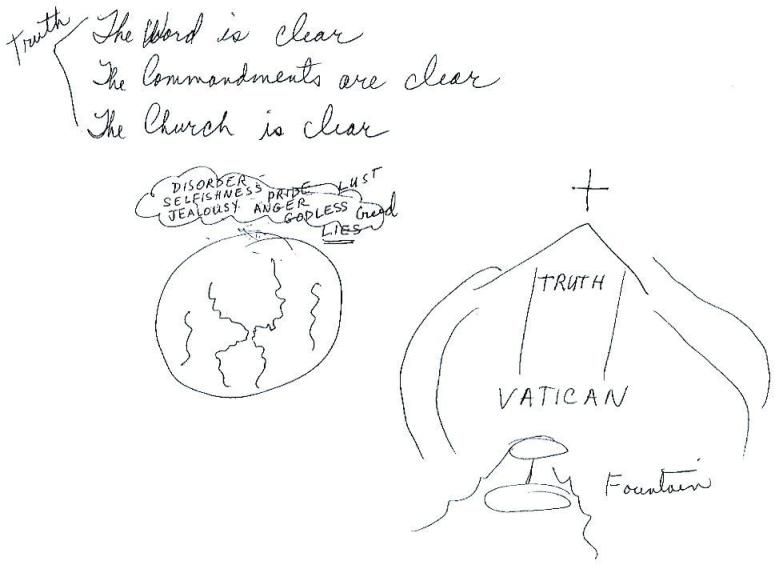 Truth
The Word is clear
The Commandments are clear
The Church is clear
DISORDER
LUST
SELFISHNESS PRIDE
JEALOUSY ANGER
GODLESS Greed
LIES
TRUTH
VATICAN
Fountain